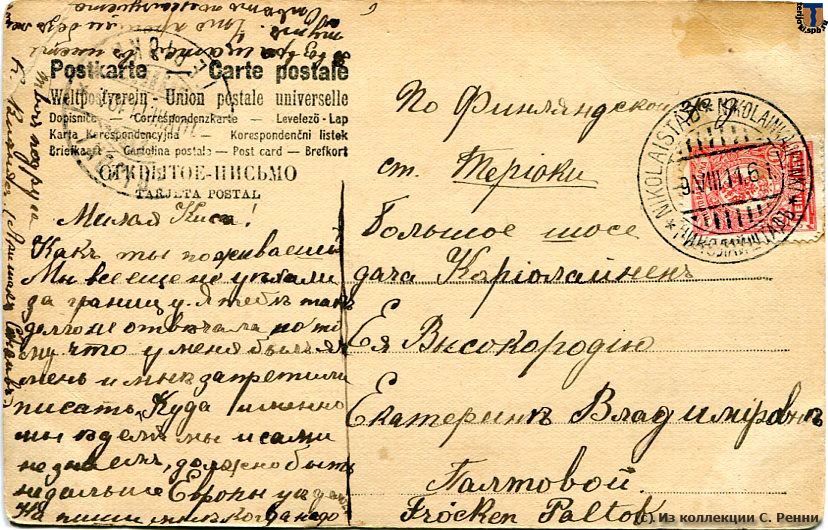 Postkarte — Carte postale
Weltpostverein - Union postale universelle
Dopisnice — Correspondenzkarte — Levelezö-Lap
Karta Korespondencyjna — Korespondenční listek
Briefkaart - Cartolina postale - Post card - Brefkort
ОТКРЫТОЕ-ПИСЬМО
TARJETA POSTAL
Милая Киса!
Какъ ты поживаешь
Мы все еще не уѣхали
за границу. Я тебѣ такъ
долго не отвѣчала пото
му что у меня былъ я
мень и мнѣ запретили
писать. Куда именно
мы ѣдемъ мы и сами
не знаемъ, должно быть
не дальше Европы
На пиши мнѣ когда надо
твоя подруга
По Финляндской
ст. Теріоки
Большое шосе
дача Каріолайненъ
Ея Высокородію
Екатеринѣ Владиміровнѣ
Палтовой.
Fröcken Paltof
NIKOLAISTAD
NIKOLAINKAUPUNKI
НИКОЛАЙШТАДТЪ
9.VIII.11.6
terijoki.spb.ru
(c) Из коллекции С. Ренни